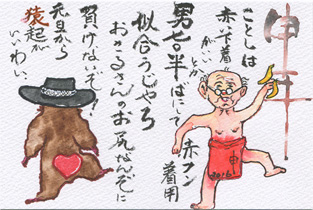 申年
ことしは
赤下着
がいいとか
男七〇半ばにして
赤フン着用
似合うじやろ
おさるさんのお尻なんぞに
負けないぞ!
元旦から
猿起が
いいわい。
申
2016